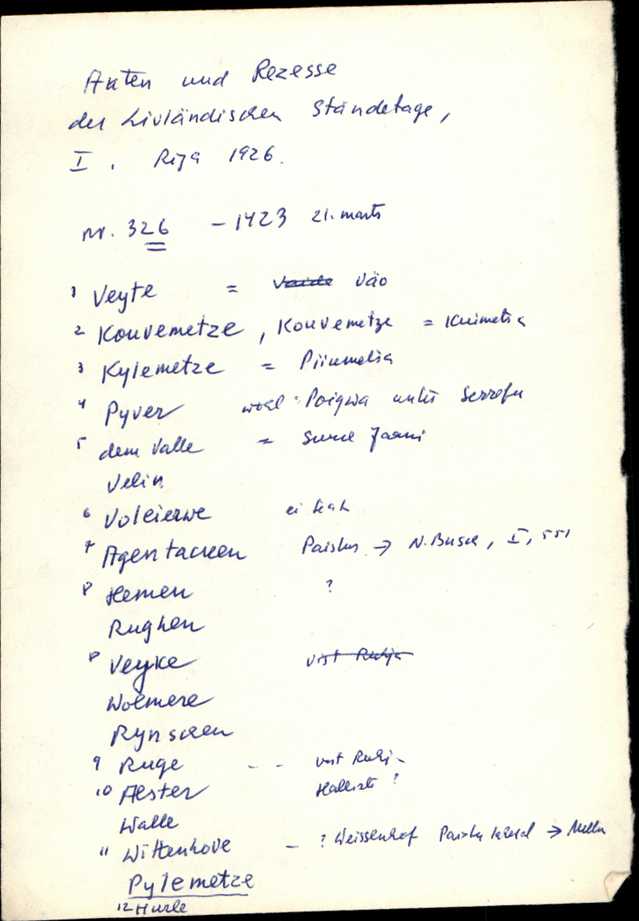 Akten und Rezesse
der Livländischen Ständetage,
I. Riga 1926.
nr. 326 - 1423 21. marts
1 Veyte = Vaide Väo
2 Kouvemetze, Kouvemetze = Kuimetsa
3 Kylemetze = Piiumetsa
4 Pyver wohl Poigwa unter Serrefer
5 dem Valle = Suure Jaani
Velin
6 Voleierwe ei leah
7 Agentacken Paistus → N. Busch, I, 551
8 Hemen ?
Rughen
8 Veyke vist Ruhja
Wolmere
Rynscken
9 Ruge -- vist Ruhj-
10 Alster Halliste ?
Walle
11 Wittenhove - ? Weissenhof Paistu → 
Pylemetze
12 Hurle